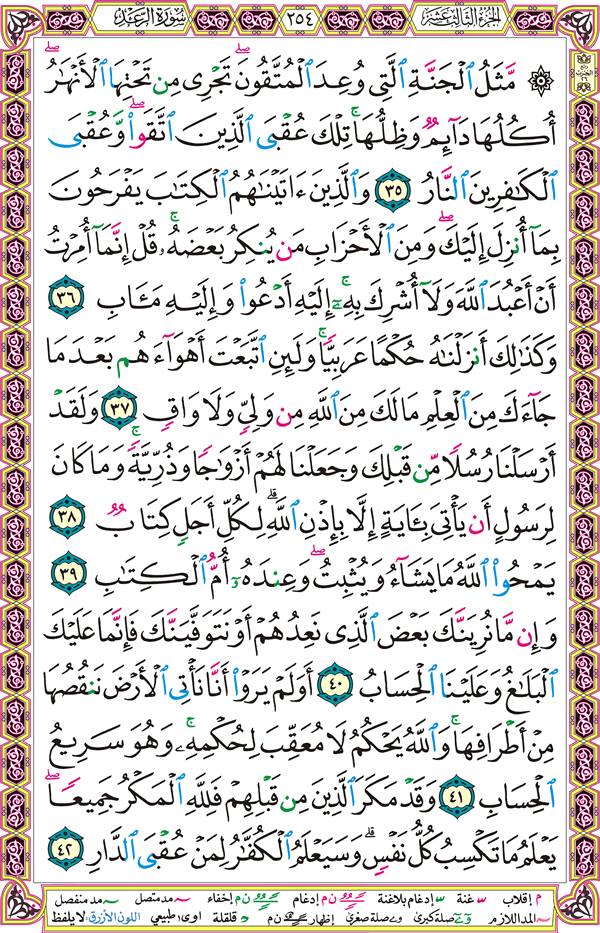 الجزء الثالث عشر ٢٥٤ سورة الرعد
۞ مَّثَلُ ٱلْجَنَّةِ ٱلَّتِى وُعِدَ ٱلْمُتَّقُونَ ۖ تَجْرِى مِن تَحْتِهَا ٱلْأَنْهَٰرُ ۖ
أُكُلُهَا دَآئِمٌ وَظِلُّهَا ۚ تِلْكَ عُقْبَى ٱلَّذِينَ ٱتَّقَوا۟ ۖ وَّعُقْبَى
ٱلْكَٰفِرِينَ ٱلنَّارُ ٣٥ وَٱلَّذِينَ ءَاتَيْنَٰهُمُ ٱلْكِتَٰبَ يَفْرَحُونَ
بِمَآ أُنزِلَ إِلَيْكَ ۖ وَمِنَ ٱلْأَحْزَابِ مَن يُنكِرُ بَعْضَهُۥ ۚ قُلْ إِنَّمَآ أُمِرْتُ
أَنْ أَعْبُدَ ٱللَّهَ وَلَآ أُشْرِكَ بِهِۦٓ ۚ إِلَيْهِ أَدْعُوا۟ وَإِلَيْهِ مَـَٔابِ ٣٦
وَكَذَٰلِكَ أَنزَلْنَٰهُ حُكْمًا عَرَبِيًّا ۚ وَلَئِنِ ٱتَّبَعْتَ أَهْوَآءَهُم بَعْدَ مَا
جَآءَكَ مِنَ ٱلْعِلْمِ مَا لَكَ مِنَ ٱللَّهِ مِن وَلِىٍّ وَلَا وَاقٍ ٣٧ وَلَقَدْ
أَرْسَلْنَا رُسُلًا مِّن قَبْلِكَ وَجَعَلْنَا لَهُمْ أَزْوَٰجًا وَذُرِّيَّةً ۚ وَمَا كَانَ
لِرَسُولٍ أَن يَأْتِىَ بِـَٔايَةٍ إِلَّا بِإِذْنِ ٱللَّهِ ۗ لِكُلِّ أَجَلٍ كِتَابٌ ٣٨
يَمْحُوا۟ ٱللَّهُ مَا يَشَآءُ وَيُثْبِتُ ۖ وَعِندَهُۥٓ أُمُّ ٱلْكِتَٰبِ ٣٩
وَإِن مَّا نُرِيَنَّكَ بَعْضَ ٱلَّذِى نَعِدُهُمْ أَوْ نَتَوَفَّيَنَّكَ فَإِنَّمَا عَلَيْكَ
ٱلْبَلَٰغُ وَعَلَيْنَا ٱلْحِسَابُ ٤٠ أَوَلَمْ يَرَوْا۟ أَنَّا نَأْتِى ٱلْأَرْضَ نَنقُصُهَا
مِنْ أَطْرَافِهَا ۚ وَٱللَّهُ يَحْكُمُ لَا مُعَقِّبَ لِحُكْمِهِۦ ۚ وَهُوَ سَرِيعُ
ٱلْحِسَابِ ٤١ وَقَدْ مَكَرَ ٱلَّذِينَ مِن قَبْلِهِمْ فَلِلَّهِ ٱلْمَكْرُ جَمِيعًا ۖ
يَعْلَمُ مَا تَكْسِبُ كُلُّ نَفْسٍ ۗ وَسَيَعْلَمُ ٱلْكُفَّٰرُ لِمَنْ عُقْبَى ٱلدَّارِ ٤٢
م إقلاب غنة إدغام بلاغنة ن م إدغام ن م إخفاء مد متصل مد منفصل
المد اللازم صلة كبرى صلة صغرى إظهار ن م قلقلة اوى طبيعي اللون الأزرق: لا يلفظ